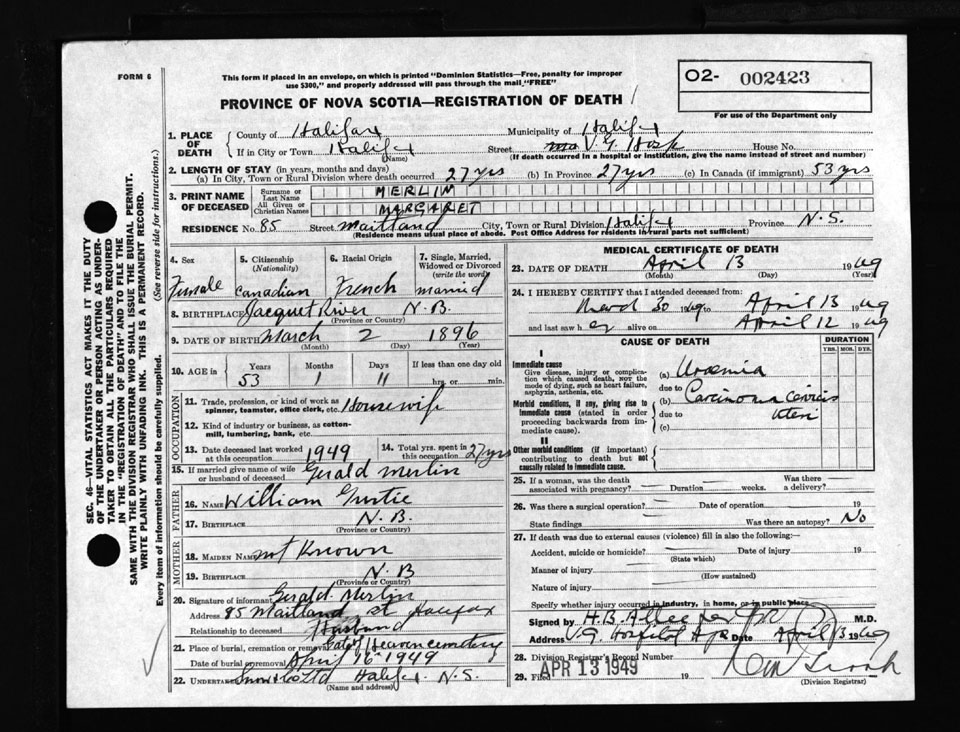 FORM 6
This form if placed in an envelope, on which is printed "Dominion Statistics—Free, penalty for improper
use $300," and properly addressed will pass through the mail "FREE"
O2- 002423
For use of the Department only
PROVINCE OF NOVA SCOTIA—REGISTRATION OF DEATH
1. PLACE OF DEATH
County of Halifax Municipality of Halifax
If in City or Town Halifax Street V. G. Hosp House No.
(Name) (If death occurred in a hospital or institution, give the name instead of street and number)
2. LENGTH OF STAY (in years, months and days)
(a) In City, Town or Rural Division where death occurred 27 yrs (b) In Province 27 yrs (c) In Canada (if immigrant) 53 yrs
3. PRINT NAME OF DECEASED
Surname or Last Name MERLIN
All Given or Christian Names MARGARET
RESIDENCE No. 85 Street Maitland City, Town or Rural Division Halifax Province N.S.
(Residence means usual place of abode. Post Office Address for residents in rural parts not sufficient)
4. Sex Female
5. Citizenship (Nationality) Canadian
6. Racial Origin French
7. Single, Married, Widowed or Divorced (write the word) Married
8. BIRTHPLACE Jacquet River N.B.
(Province or Country)
9. DATE OF BIRTH March 2 1896
(Month) (Day) (Year)
10. AGE in Years Months Days If less than one day old
53 1 11 hrs. or min.
OCCUPATION
11. Trade, profession, or kind of work as spinner, teamster, office clerk, etc. Housewife
12. Kind of industry or business, as cotton-mill, lumbering, bank, etc.
13. Date deceased last worked at this occupation 1949
14. Total yrs. spent in this occupation 27 yrs
15. If married give name of wife or husband of deceased Gerald Merlin
FATHER
16. Name William
17. Birthplace N.B.
(Province or Country)
MOTHER
18. Maiden Name not Known
19. Birthplace N.B
(Province or Country)
20. Signature of informant Gerald Merlin
Address 85 Maitland St Halifax
Relationship to deceased Husband
21. Place of burial, cremation or removal Gate of Heaven Cemetery
Date of burial or removal April 16 1949
22. Undertaker Snow & Co Ltd Halifax. N.S.
(Name and address)
MEDICAL CERTIFICATE OF DEATH
23. DATE OF DEATH April 13 1949
(Month) (Day) (Year)
24. I HEREBY CERTIFY that I attended deceased from:
March 30 1949 to April 13 1949
and last saw her alive on April 12 1949
CAUSE OF DEATH DURATION
YRS. MOS. DYS.
I
Immediate cause
Give disease, injury or complication which caused death, NOT the mode of dying, such as heart failure, asphyxia, asthenia, etc.
(a) Uraemia
due to
Morbid conditions, if any, giving rise to immediate cause (stated in order proceeding backwards from immediate cause).
(b) Carcinoma Cervix
due to Uteri
(c)
II
Other morbid conditions (if important) contributing to death but not causally related to immediate cause.
25. If a woman, was the death associated with pregnancy? Duration weeks. Was there a delivery?
26. Was there a surgical operation? Date of operation 19
State findings Was there an autopsy? No
27. If death was due to external causes (violence) fill in also the following:—
Accident, suicide or homicide? Date of injury 19
(State which)
Manner of injury
(How sustained)
Nature of injury
Specify whether injury occurred in industry, in home, or in public place
Signed by H.B. M.D.
Address V.G. Hospital Date April 13 1949
28. Division Registrar's Record Number
29. Filed APR 13 1949 19
(Division Registrar)
SEC. 46—VITAL STATISTICS ACT MAKES IT THE DUTY
OF THE UNDERTAKER OR PERSON ACTING AS UNDERTAKER TO OBTAIN ALL THE PARTICULARS REQUIRED
IN THE "REGISTRATION OF DEATH" AND TO FILE THE
SAME WITH THE DIVISION REGISTRAR WHO SHALL ISSUE THE BURIAL PERMIT.
WRITE PLAINLY WITH UNFADING INK. THIS IS A PERMANENT RECORD.
Every item of information should be carefully supplied. (See reverse side for instructions.)